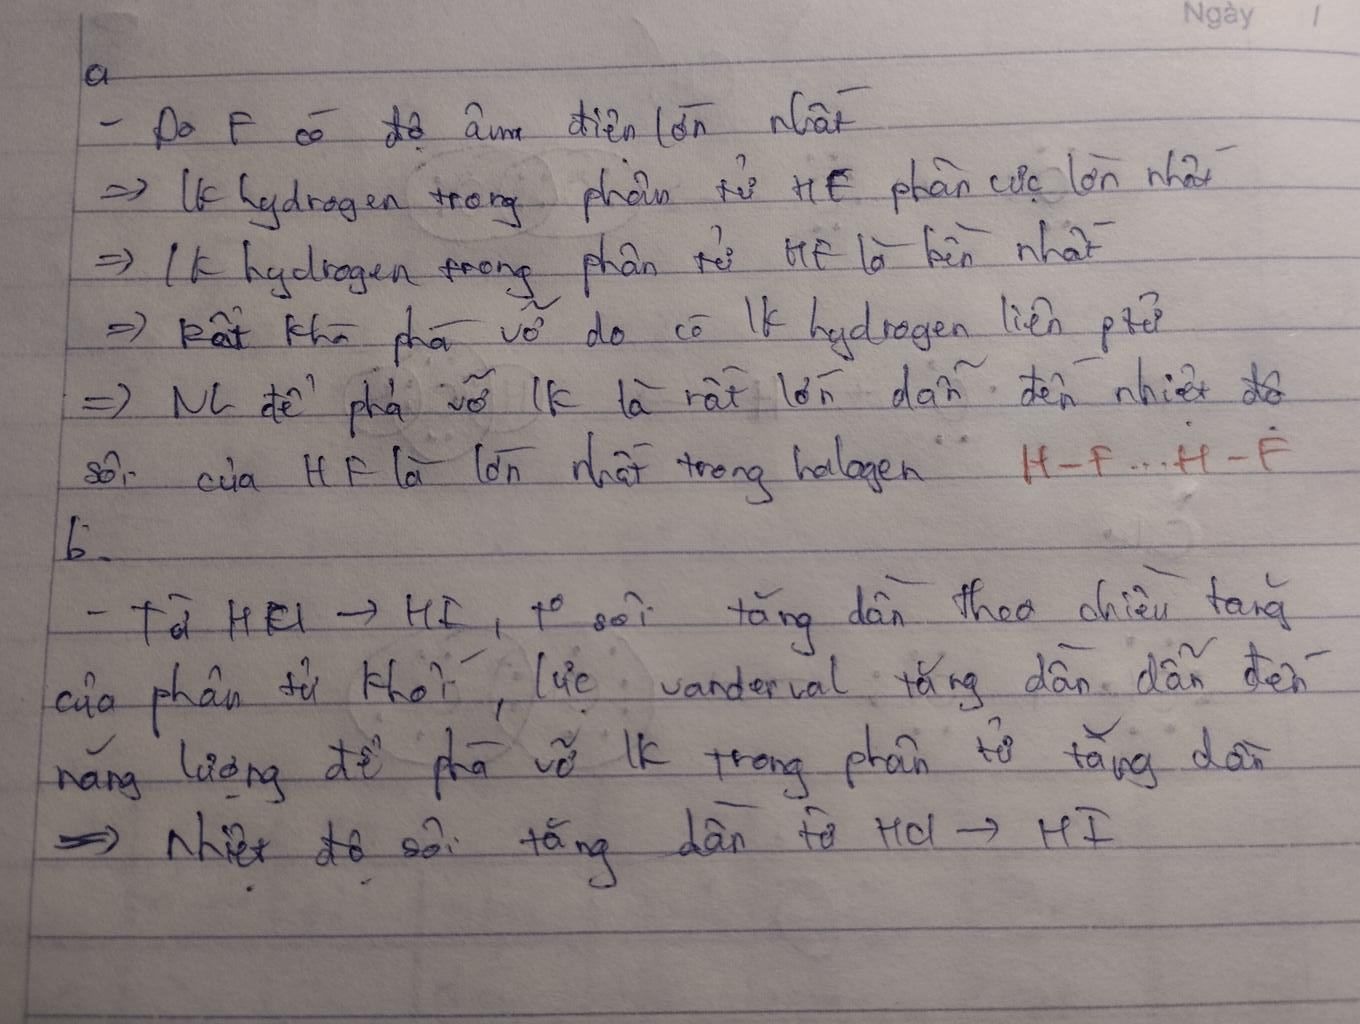 Ngày /
a
- Do F có độ âm điện lớn nhất
=> lk hydrogen trong phân tử HF phân cực lớn nhất
=> lk hydrogen trong phân tử HF là bền nhất
=> Rất khó phá vỡ do có lk hydrogen liên ptử
=> NL để phá vỡ lk là rất lớn dẫn đến nhiệt độ
sôi của HF là lớn nhất trong halogen H-F...H-F
b.
- Từ HCl → HI, t° sôi tăng dần theo chiều tăng
của phân tử khối, lực vanderval tăng dần dẫn đến
năng lượng để phá vỡ lk trong phân tử tăng dần
=> Nhiệt độ sôi tăng dần từ HCl → HI